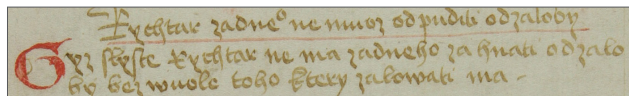 Rychtar zadneº ne muoz odpuditi od zaloby
Gyz slyste Rychtar ne ma zadneho zahnati od zalo
by bez wuole toho ktery zalowati ma -